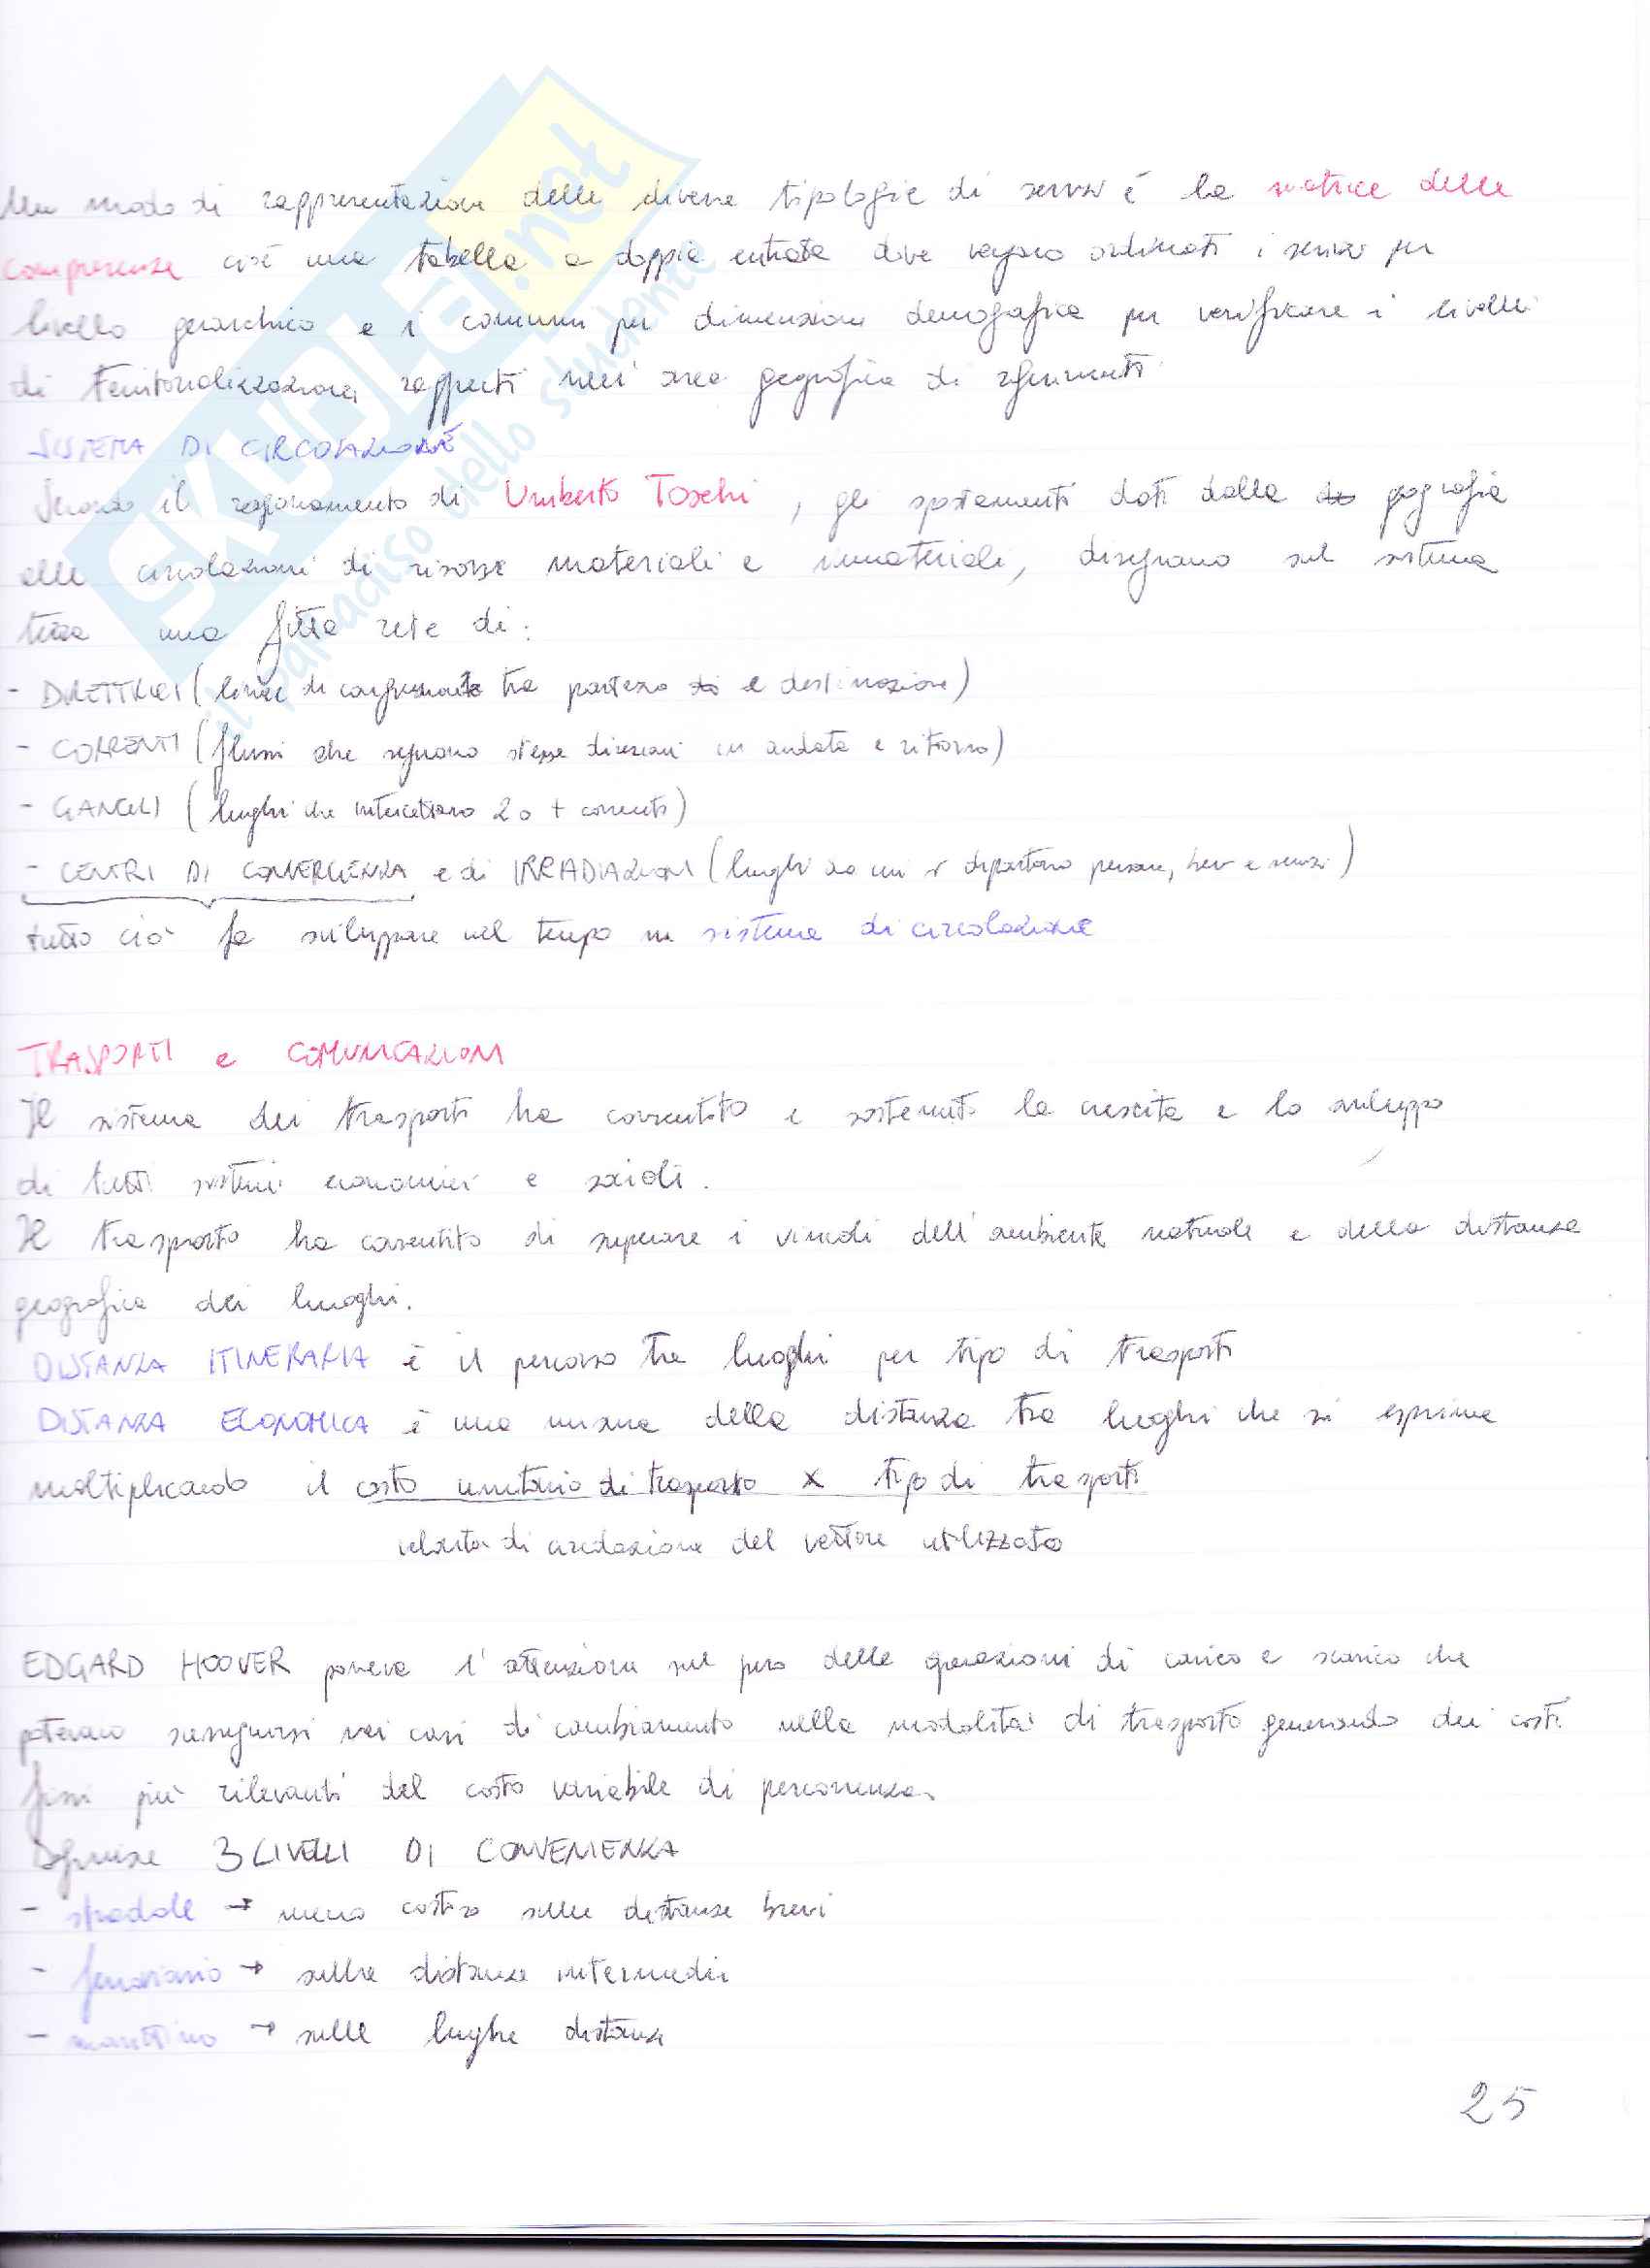 Un modo di rappresentazione delle diverse tipologie di servizi è la matrice delle
compresenze cioè una tabella a doppia entrata dove vengono ordinati i servizi per
livello gerarchico e i comuni per dimensione demografica per verificare i livelli
di territorializzazione rapporti nell'area geografica di riferimento
SISTEMA DI CIRCOLAZIONE
Secondo il ragionamento di Umberto Toschi, gli spostamenti dati dalla geografia
elle circolazioni di risorse materiali e immateriali, disegnano sul sistema
terra una fitta rete di:
- DIRETTRICI (linee di congiunzione tra partenza e destinazione)
- CORRENTI (flussi che seguono stesse direzioni in andata e ritorno)
- GANGLI (luoghi che intercettano 2 o + correnti)
- CENTRI DI CONVERGENZA e di IRRADIAZIONI (luoghi da cui si dipartono persone, beni e servizi)
tutto ciò fa sviluppare nel tempo un sistema di circolazione
TRASPORTI e COMUNICAZIONI
Il sistema dei trasporti ha consentito e sostenuto la crescita e lo sviluppo
di tutti sistemi economici e sociali.
Il trasporto ha consentito di superare i vincoli dell'ambiente naturale e della distanza
geografica dei luoghi.
DISTANZA ITINERARIA è il percorso tra luoghi per tipo di trasporti
DISTANZA ECONOMICA è una misura della distanza tra luoghi che si esprime
moltiplicando il costo unitario di trasporto x tipo di trasporti
velocità di circolazione del vettore utilizzato
EDGARD HOOVER poneva l'attenzione sul peso delle operazioni di carico e scarico che
potevano susseguirsi nei casi di cambiamento nella modalità di trasporto generando dei costi
fissi più rilevanti del costo variabile di percorrenza.
Definisce 3 LIVELLI DI CONVENIENZA
- stradale → meno costoso sulle distanze brevi
- ferroviario → sulle distanze intermedie
- marittimo → sulle lunghe distanze
25
SKUOLA.net
il paradiso dello studente